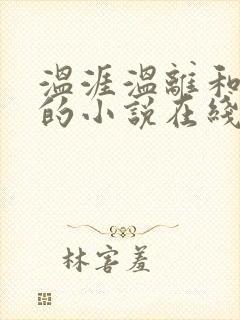 温涯温離和
的小說在綫
林害羞